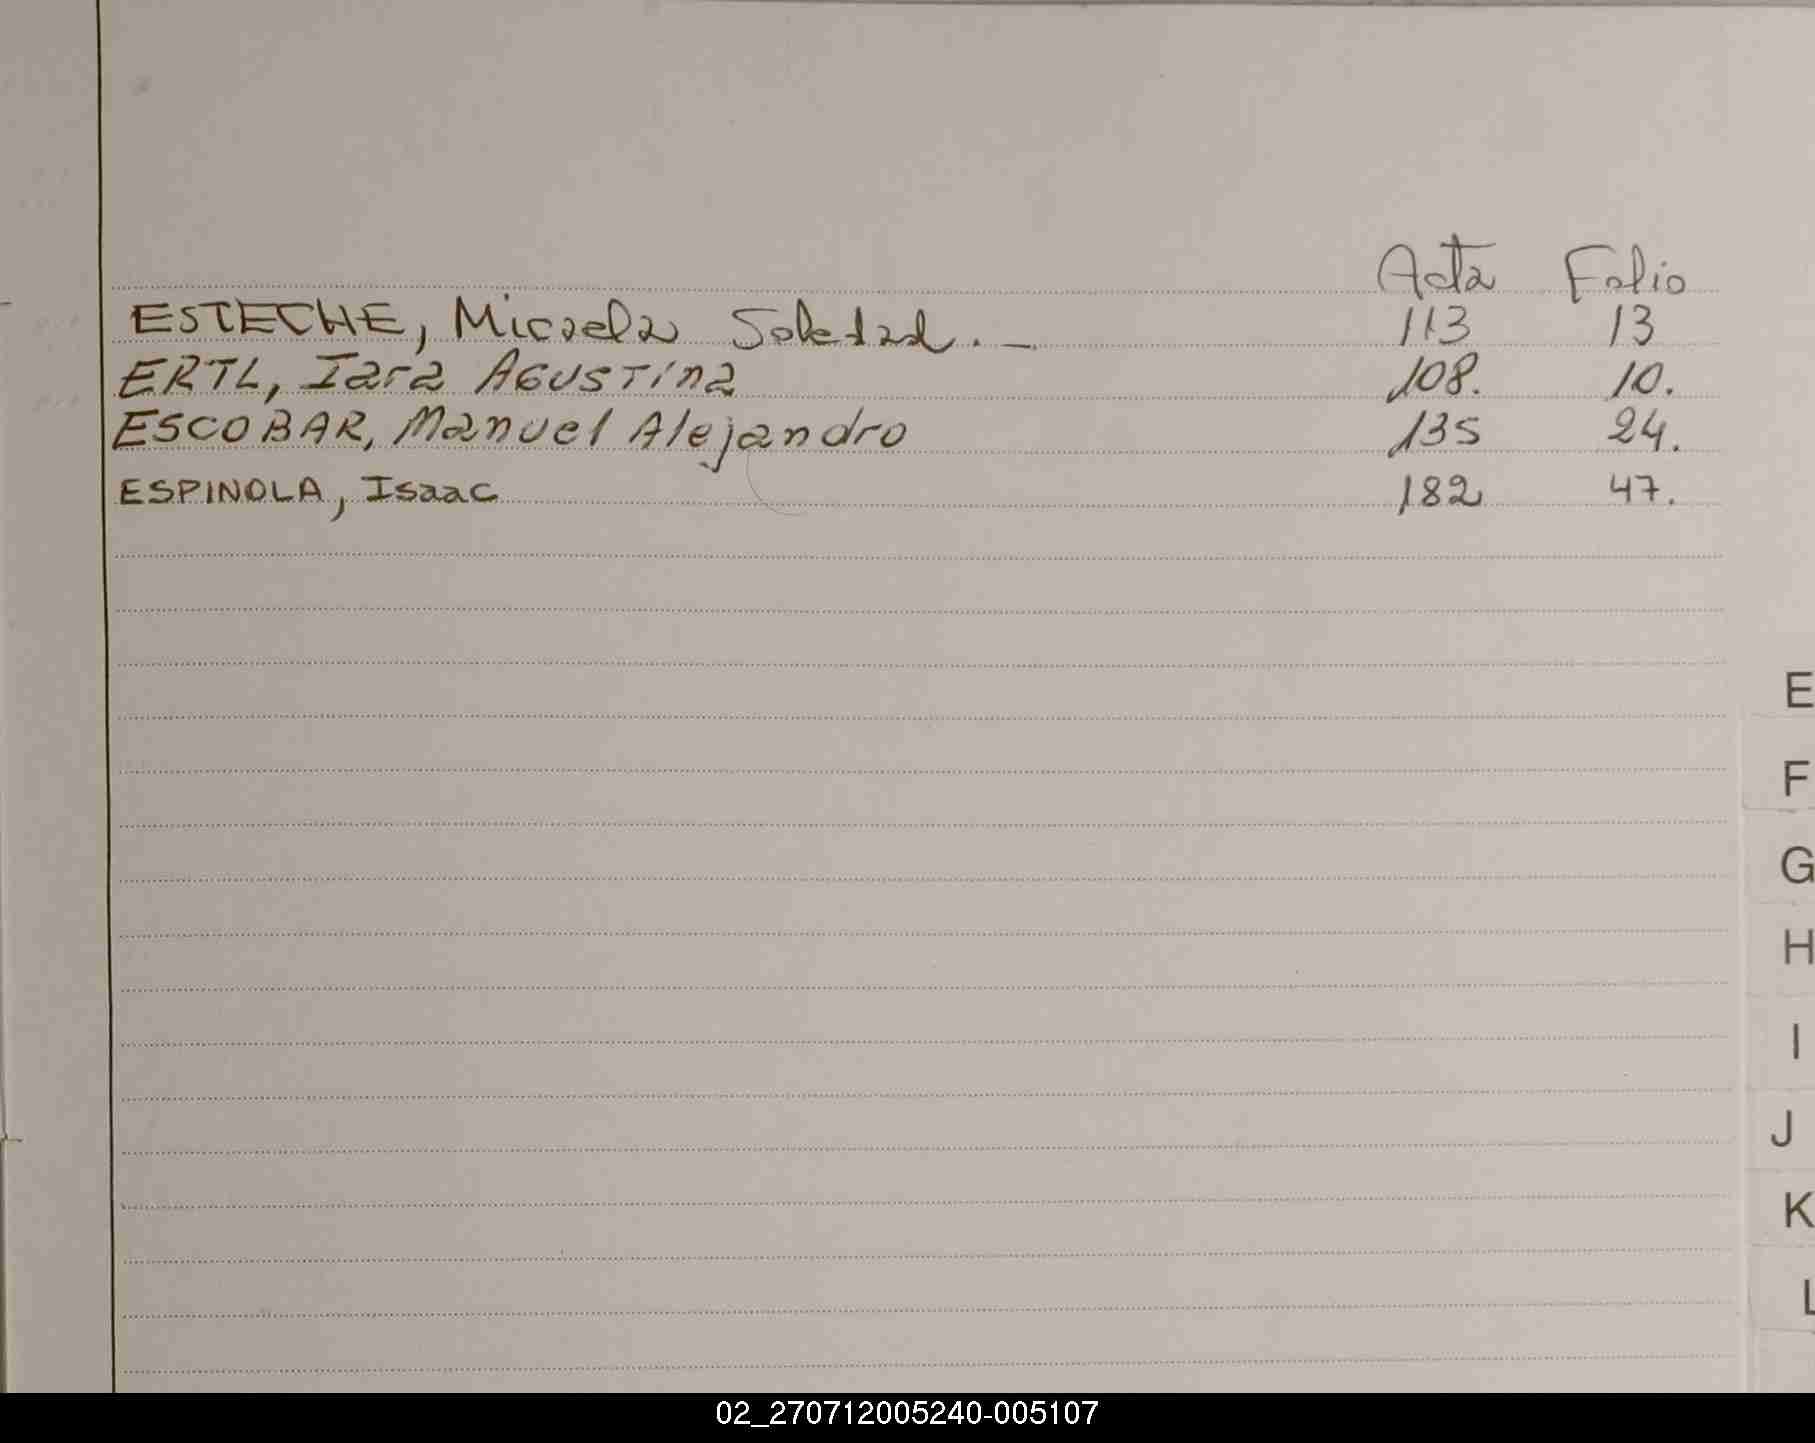 Acta Folio
ESTECHE, Micaela Soledad. — 113 13
ERTL, Iara AGUSTina 108. 10.
ESCOBAR, Manuel Alejandro 135 24.
ESPINOLA, Isaac 182 47.
E
F
G
H
I
J
K
L
02_270712005240-005107